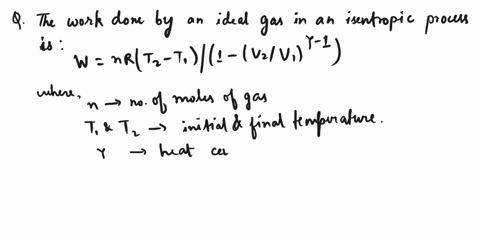 Q. The work done by an ideal gas in an isentropic process
is:
W = nR(T₂-T₁)/(1-(V₂/V₁)^γ-1)
where,
n → no. of moles of gas
T₁ & T₂ → initial & final temperature.
γ → heat cer